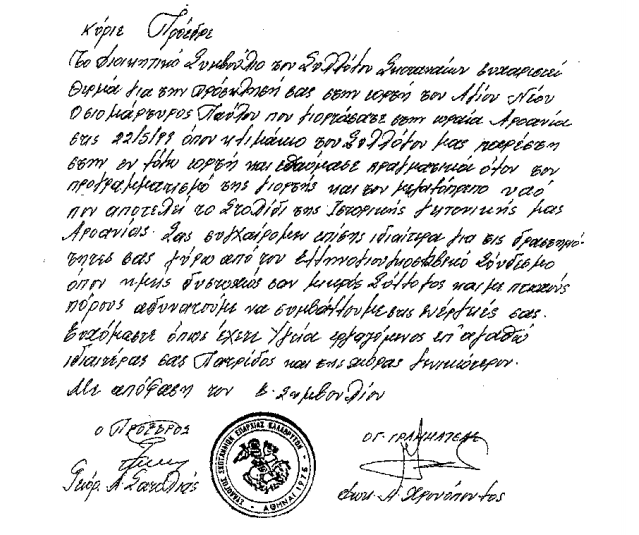 Κύριε Πρόεδρε
Το Διοικητικό Συμβούλιο του Συλλόγου Σκοταναίων ευχαριστεί
Θερμά για την πρόσκλησή σας στην εορτή του Αγίου Νέου
Οσιομάρτυρος Παύλου που γιορτάσατε στην ωραία Αροανία
στις 22/5/99 όπου κλιμάκιο του Συλλόγου μας παρέστη
στην εν λόγω εορτή και εθαύμασε πραγματικά όλον τον
προγραμματισμό της γιορτής και τον μεγαλόπρεπο ναό
που αποτελεί το Στολίδι της Ιστορικής γειτονικής μας
Αροανίας. Σας συγχαίρομεν επίσης ιδιαίτερα για τις δραστηριό-
τητες σας γύρω από τον Ελληνο σύνδεσμο
όπου ημείς δυστυχώς σαν μικρός Σύλλογος και με πτωχούς
πόρους αδυνατούμε να συμβάλλουμε στις ενέργειές σας.
Ευχόμαστε όπως έχετε Υγεία εργαζόμενος επ' αγαθώ
ιδιαιτέρας σας Πατρίδος και της χώρας γενικώτερον.
Με απόφαση του Δ. Συμβουλίου
Ο ΠΡΟΕΔΡΟΣ
Ο Γ. ΓΡΑΜΜΑΤΕΑΣ
Γεώρ. Α.
Α. Χρονόπουλος
ΣΥΛΛΟΓΟΣ ΣΚΟΤΑΝΑΙΩΝ ΕΠΑΡΧΙΑΣ ΚΑΛΑΒΡΥΤΩΝ
ΑΘΗΝΑΙ 1976